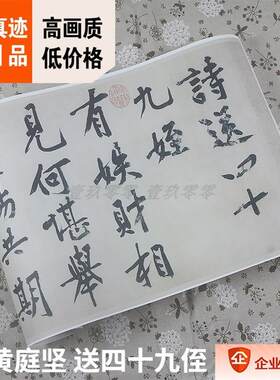 真迹
品
高画质
低价格
詩送四十
九姪
有娭財相
見何堪舉
共期
壹玖零零
黄庭坚 送四十九侄
企业